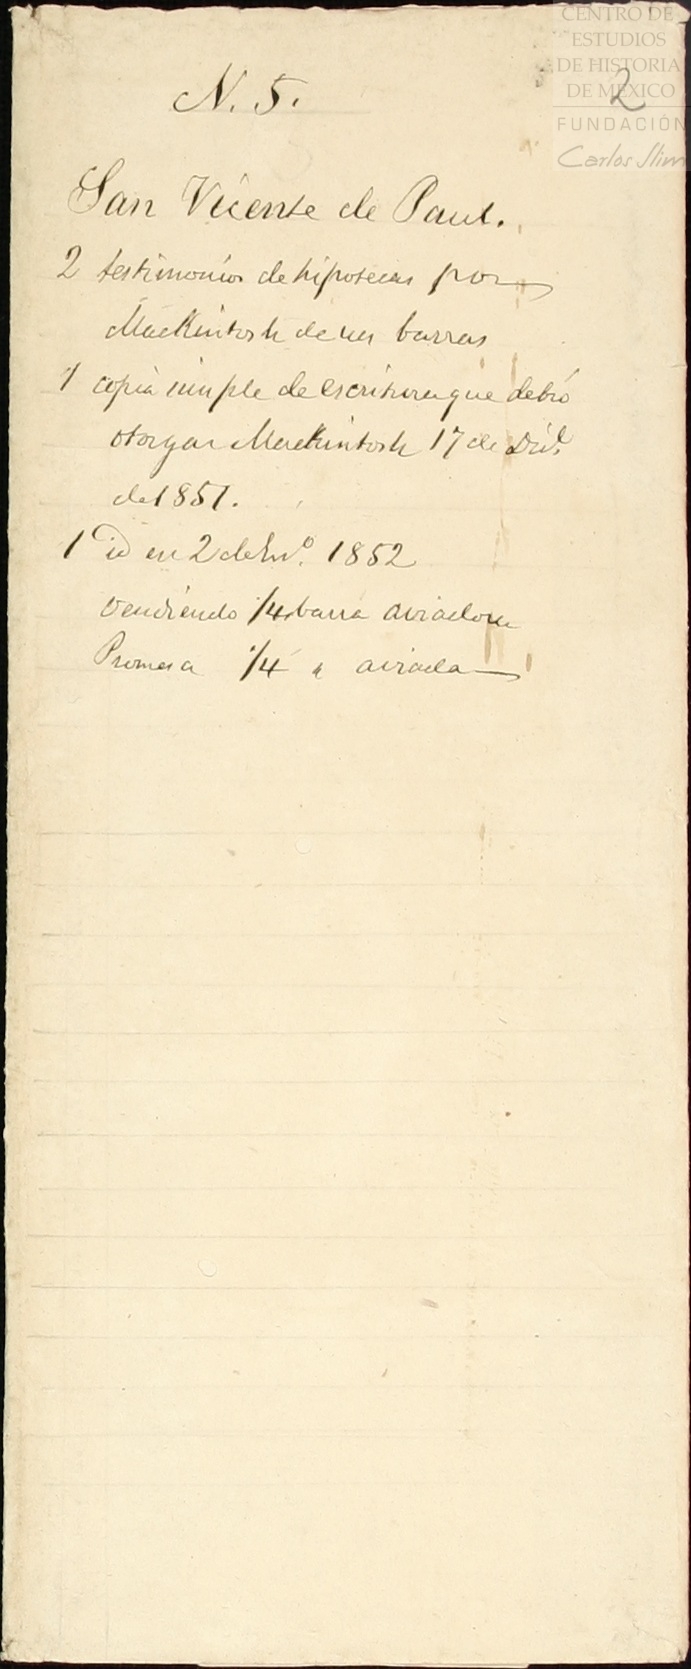 CENTRO DE
ESTUDIOS
DE HISTORIA
DE MÉXICO
FUNDACIÓN
Carlos Slim
2
N. 5.
San Vicente de Paul.
2 testimonios de hipotecas por
MacKintosh de sus barras
1 copia simple de escritura que debió
otorgar MacKintosh 17 de Dic.e
de 1851.
1 id en 2 de En.o 1852
vendiendo 1/4 barra aviadora
Promesa 1/4 " aviada